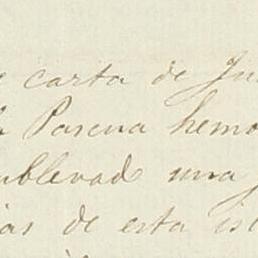 carta de Ju
Pascua hemo
ublevad una
ias de esta is